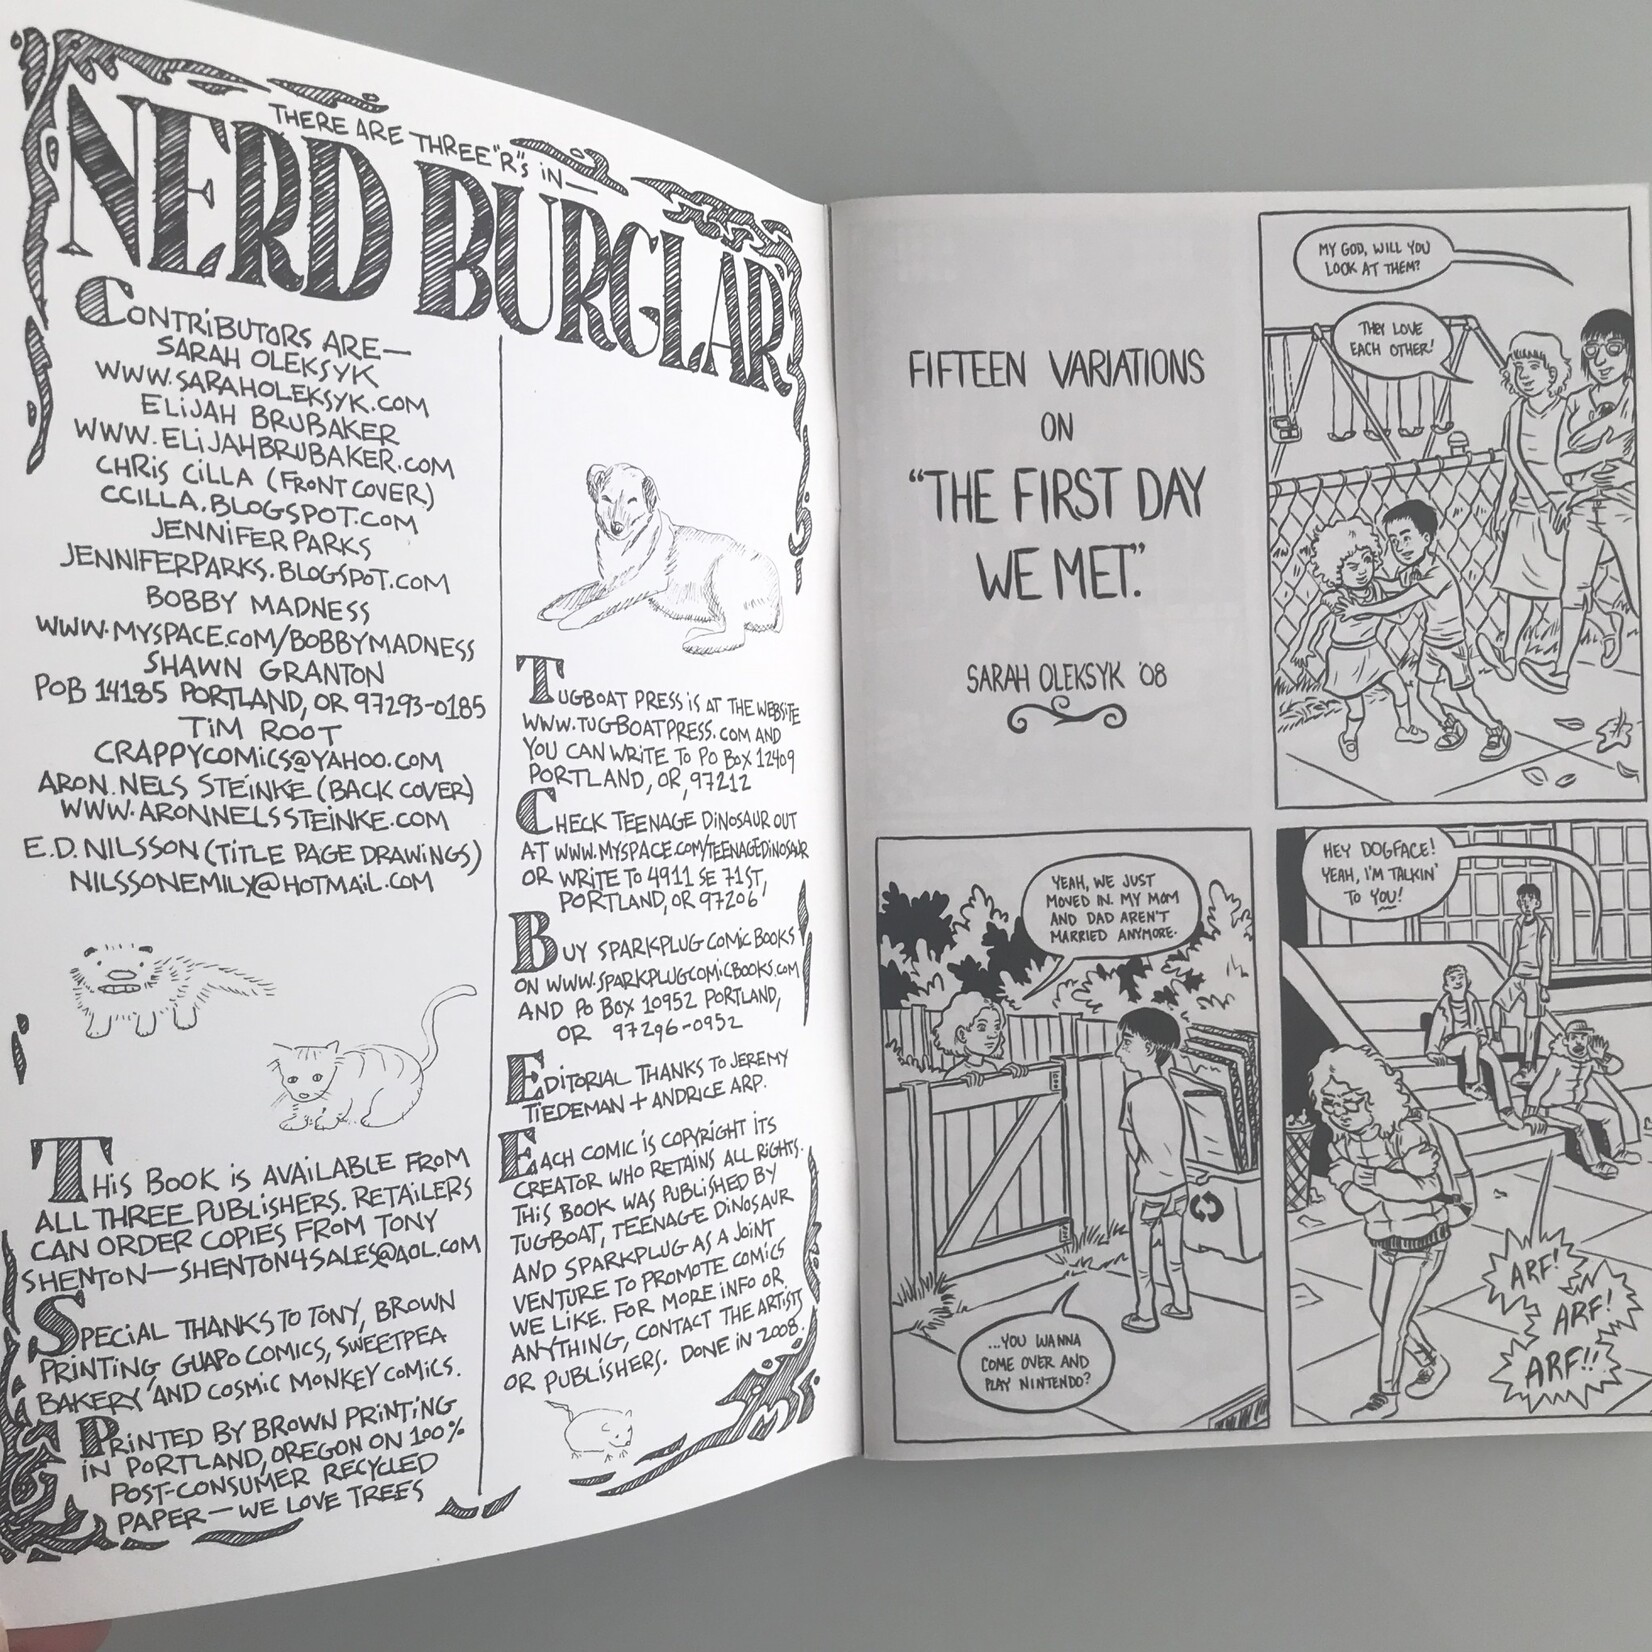 THERE ARE THREE "R"s iN—
NERD BURGLAR
CONTRiBUTORS ARE—
SARAH OLEKSYK
WWW.SARAHOLEKSYK.COM
ELiJAH BRUBAKER
WWW.ELiJAHBRUBAKER.COM
CHRiS CiLLA (FRONT COVER)
CCILLA.BLOGSPOT.COM
JENNiFER PARKS
JENNIFERPARKS.BLOGSPOT.COM
BOBBY MADNESS
WWW.MYSPACE.COM/BOBBYMADNESS
SHAWN GRANTON
POB 14185 PORTLAND, OR 97293-0185
TiM ROOT
CRAPPYCOMiCS@YAHOO.COM
ARON NELS STEiNKE (BACK COVER)
WWW.ARONNELSSTEiNKE.COM
E.D. NILSSON (TiTLE PAGE DRAWiNGS)
NILSSONEMILY@HOTMAiL.COM
THiS BOOK iS AVAiLABLE FROM
ALL THREE PUBLiSHERS. RETAiLERS
CAN ORDER COPiES FROM TONY
SHENTON—SHENTON4SALES@AOL.COM
SPECiAL THANKS TO TONY, BROWN
PRiNTiNG, GUAPO COMiCS, SWEETPEA
BAKERY AND COSMiC MONKEY COMiCS.
PRiNTED BY BROWN PRiNTiNG
iN PORTLAND, OREGON ON 100%
POST-CONSUMER RECYCLED
PAPER—WE LOVE TREES
TUGBOAT PRESS iS AT THE WEBSiTE
WWW.TUGBOATPRESS.COM AND
YOU CAN WRiTE TO PO BOX 12409
PORTLAND, OR, 97212
CHECK TEENAGE DiNOSAUR OUT
AT WWW.MYSPACE.COM/TEENAGEDiNOSAUR
OR WRiTE TO 4911 SE 71ST,
PORTLAND, OR 97206
BUY SPARKPLUG COMiC BOOKS
ON WWW.SPARKPLUGCOMiCBOOKS.COM
AND PO BOX 10952 PORTLAND,
OR 97296-0952
EDiTORiAL THANKS TO JEREMY
TIEDEMAN + ANDRICE ARP.
EACH COMiC iS COPYRiGHT ITS
CREATOR WHO RETAiNS ALL RiGHTS.
THiS BOOK WAS PUBLiSHED BY
TUGBOAT, TEENAGE DiNOSAUR
AND SPARKPLUG AS A JOiNT
VENTURE TO PROMOTE COMiCS
WE LiKE. FOR MORE iNFO OR
ANYTHiNG, CONTACT THE ARTiSTS
OR PUBLiSHERS. DONE iN 2008.
FIFTEEN VARIATIONS
ON
"THE FIRST DAY
WE MET."
SARAH OLEKSYK '08
MY GOD, WILL YOU
LOOK AT THEM?
THEY LOVE
EACH OTHER!
YEAH, WE JUST
MOVED IN. MY MOM
AND DAD AREN'T
MARRIED ANYMORE.
...YOU WANNA
COME OVER AND
PLAY NINTENDO?
HEY DOGFACE!
YEAH, I'M TALKIN'
TO YOU!
ARF!
ARF!
ARF!!